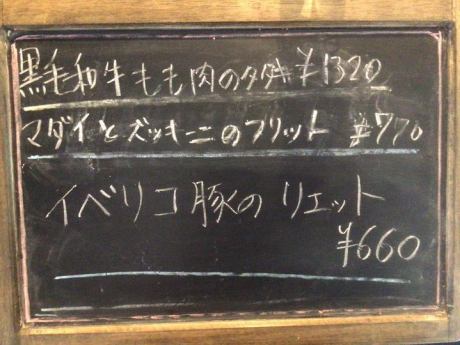 黒毛和牛もも肉のタタキ ¥1320
マダイとズッキーニのフリット ¥770
イベリコ豚のリエット
¥660